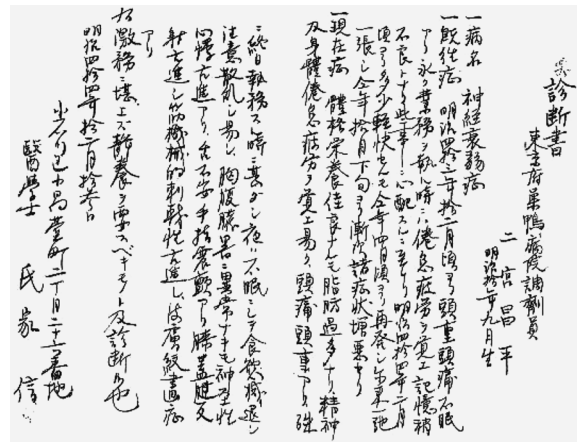 診断書
東京府巣鴨病院調剤員
二宮昌平
明治拾二年九月生
一病名 神経衰弱症
一既往症 明治四拾三年拾二月頃ヨリ頭重頭痛不眠
アリ永ク業務ヲ執ル時ハ倦怠疲労ヲ覚エ記憶稍
不良トナリ些事ニ心配スルニ至リ明治四拾四年二月
頃ヨリ多少軽快セルモ今年四月頃ヨリ再発シ尓来一弛
一張シ今年拾月下旬ヨリ漸次諸症状増悪セリ
一現在症 體格栄養佳良ナルモ脂肪過多ナリ、精神
及身體倦怠疲労ヲ覚エ易ク、頭痛頭重アリ殊
ニ終日執務スル時ニ甚ダシ夜ハ不眠ニシテ食欲減退シ
注意散乱シ易シ、胸腹臓器ニ異常ナキモ神経性
心悸亢進アリ、舌不安手指震顫アリ膝蓋腱反
射亢進シ筋機械的刺戟性亢進シ、皮膚紋畫症
アリ
右激務ニ堪ヘズ静養ヲ要スベキモノト及診断候也
明治四拾四年拾二月拾六日
小石川区小日向臺町二丁目二十二番地
醫学士 氏家 信